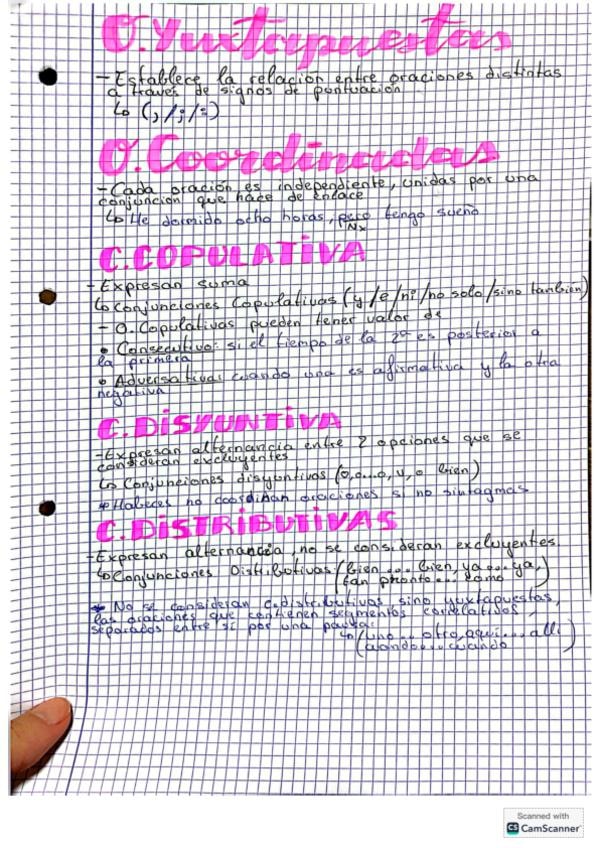 O.Yuxtapuestas
- Establece la relación entre oraciones distintas
a través de signos de puntuación
↳ (,/;/:)
O.Coordinadas
- Cada oración es independiente, unidas por una
conjunción que hace de enlace
↳ He dormido ocho horas, pero tengo sueño
Nx
C.COPULATIVA
- Expresan suma
↳ Conjunciones Copulativas (y/e/ni/no solo/sino tanbien)
- O. Copulativas pueden tener valor de
• Consecutivo: si el tiempo de la 2º es posterior a
la primera
• Adversativa: cuando una es afirmativa y la otra
negativa
C.DISYUNTIVA
- Expresan alternancia entre 2 opciones que se
consideran excluyentes
↳ Conjunciones disyuntivas (o, o...o, u, o bien)
* Haberes no coordinan oraciones si no sintagmas
C.DISTRIBUTIVAS
- Expresan alternancia, no se consideran excluyentes
↳ Conjunciones Distributivas (bien... bien, ya... ya,
tan pronto... como)
* No se consideran c.distributivas sino yuxtapuestas,
las oraciones que contienen segmentos correlatidos,
separados entre sí por una pausa:
↳ (uno... otro, aquí... allí
cuando... cuando)
Scanned with
CS CamScanner